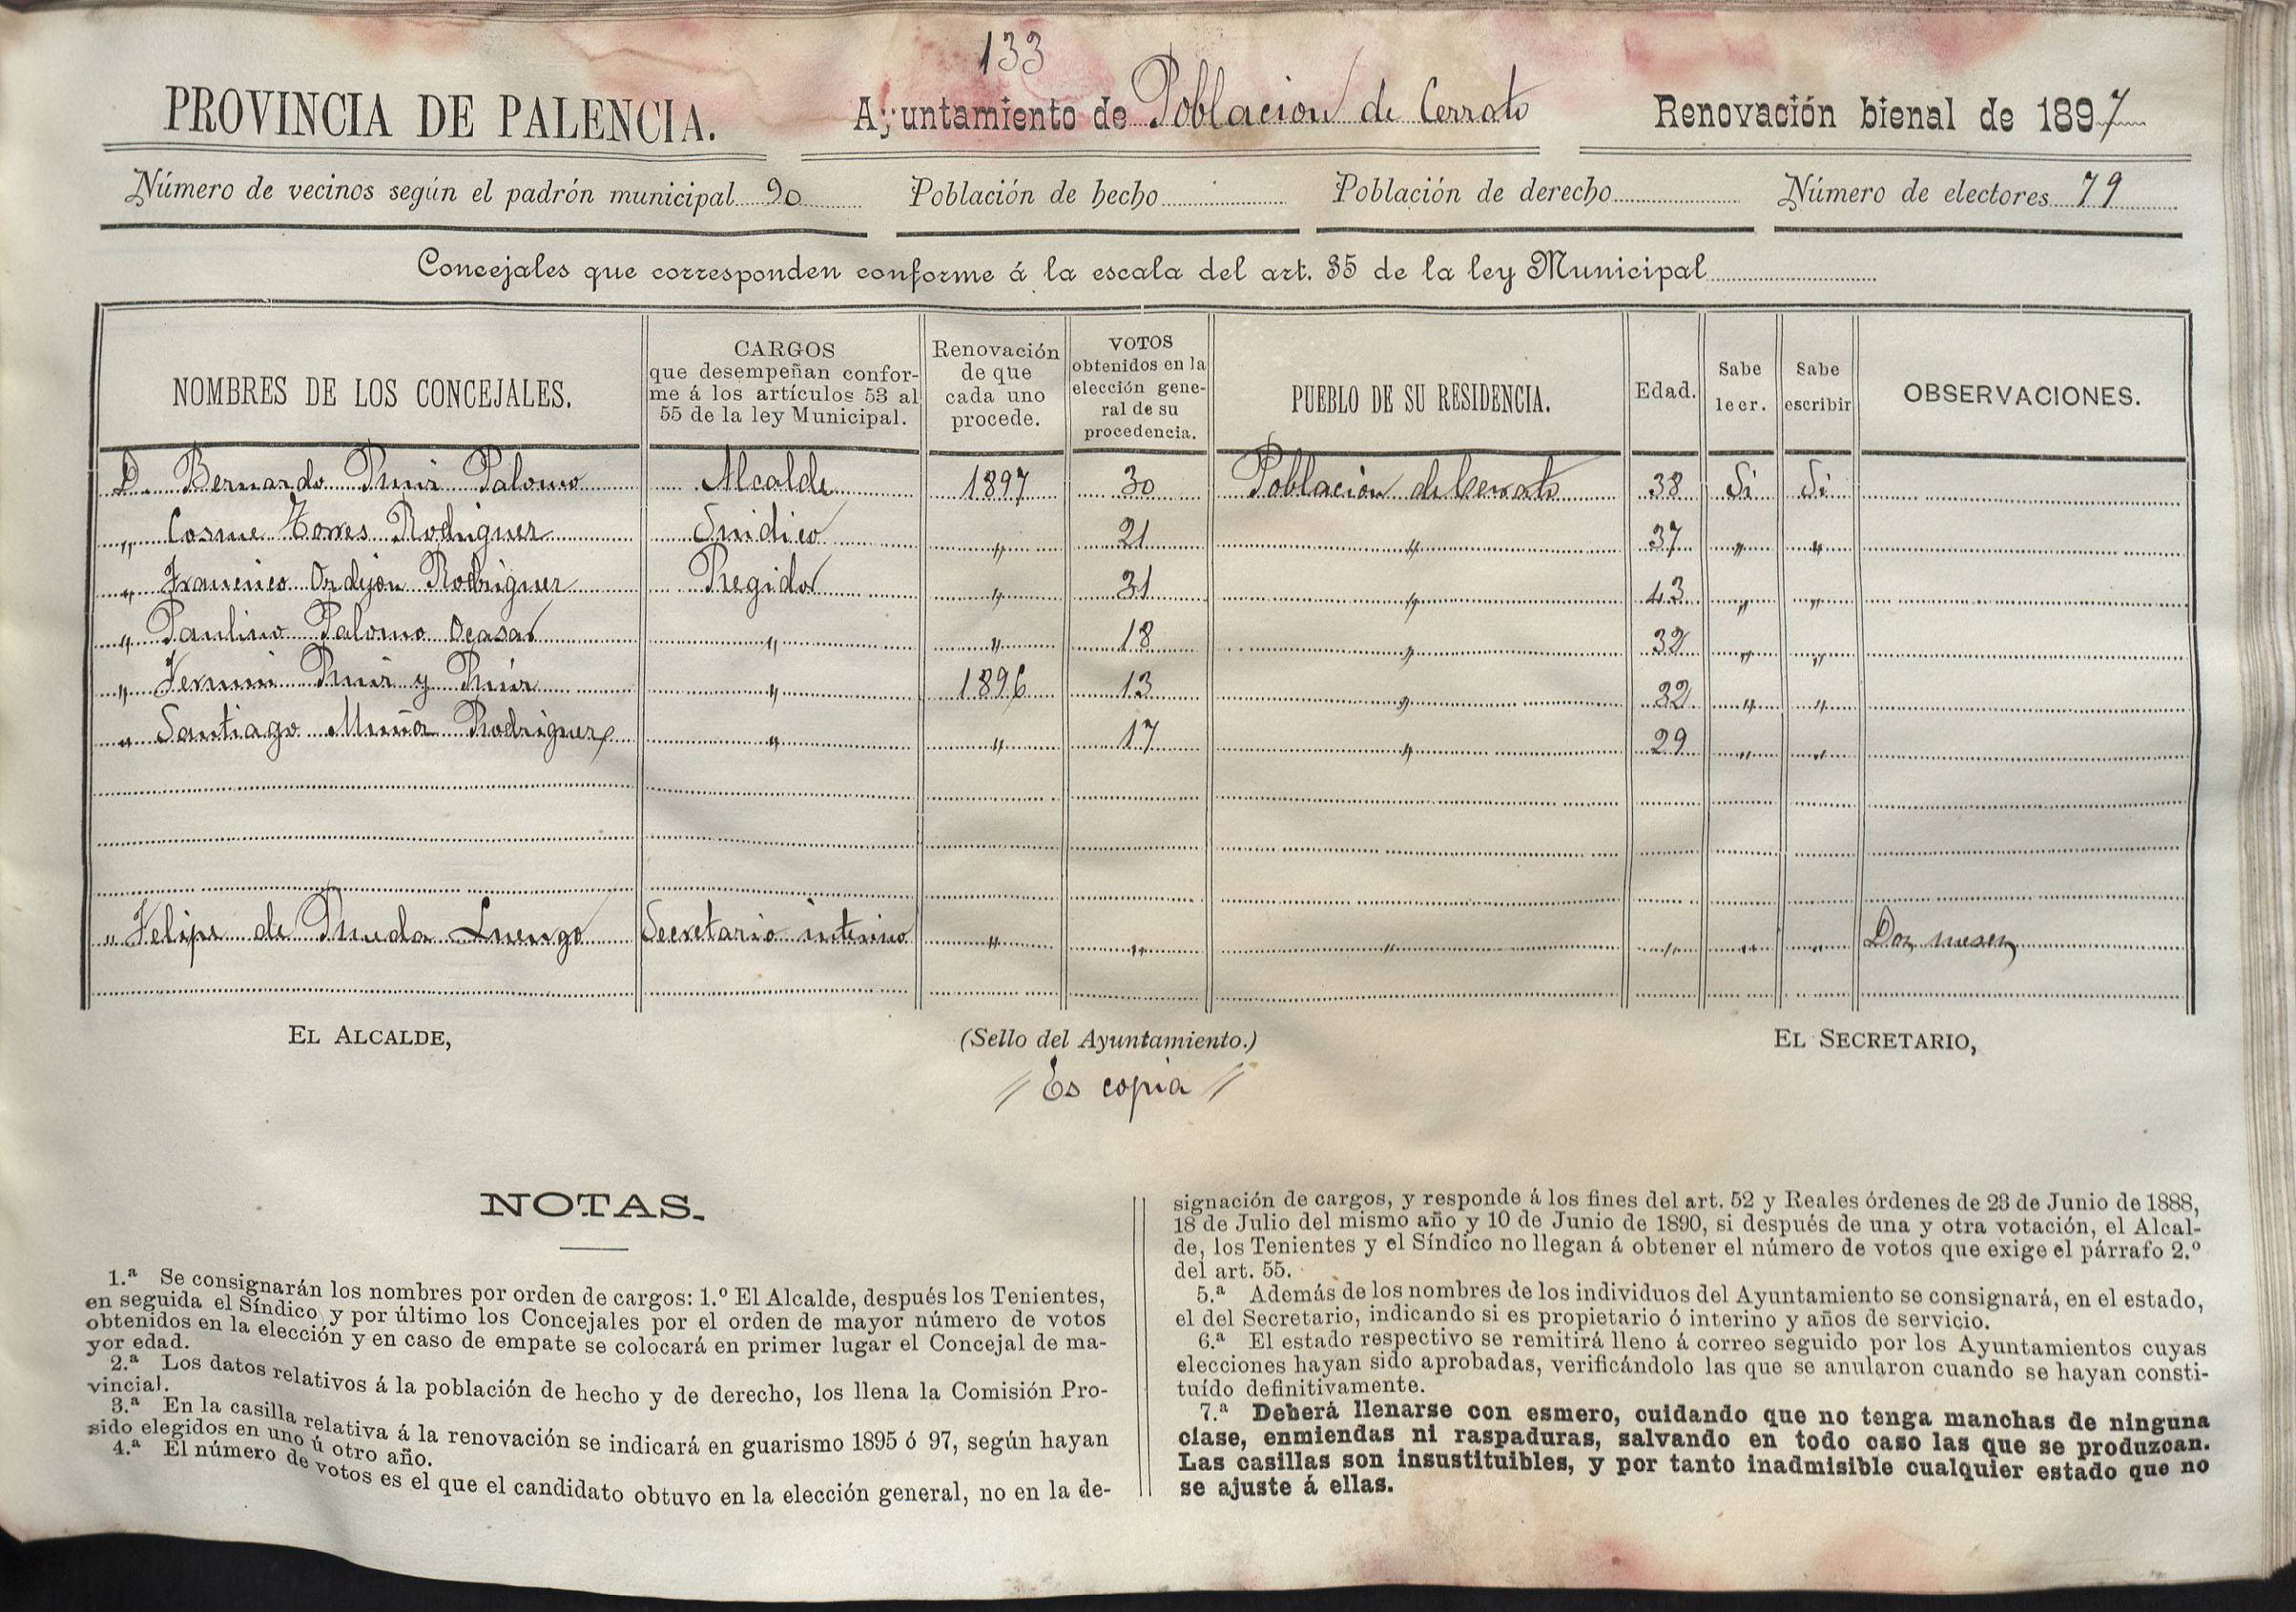 133
PROVINCIA DE PALENCIA. Ayuntamiento de Poblacion de Cerrato Renovación bienal de 1897
Número de vecinos según el padrón municipal 90 Población de hecho Población de derecho Número de electores 79
Concejales que corresponden conforme á la escala del art. 35 de la ley Municipal
NOMBRES DE LOS CONCEJALES. CARGOS que desempeñan conforme á los artículos 53 al 55 de la ley Municipal. Renovación de que cada uno procede. VOTOS obtenidos en la elección general de su procedencia. PUEBLO DE SU RESIDENCIA. Edad. Sabe leer. Sabe escribir OBSERVACIONES.
D. Bernardo Ruiz Palomo Alcalde 1897 30 Población de Cerrato 38 Si Si
" Cosme Torres Rodriguez Sindico " 21 " 37 " "
" Francisco Ordejon Rodriguez Regidor " 31 " 43 " "
" Paulino Palomo " " 18 " 32 " "
" Fermin Ruiz y Ruiz " 1896 13 " 32 " "
" Santiago Muñoz Rodriguez " " 17 " 29 " "
" Felipe de Rueda Luengo Secretario interino " " " " " " Dos meses
EL ALCALDE, (Sello del Ayuntamiento.) EL SECRETARIO,
// Es copia //
NOTAS.
1.ª Se consignarán los nombres por orden de cargos: 1.º El Alcalde, después los Tenientes,
en seguida el Síndico y por último los Concejales por el orden de mayor número de votos
obtenidos en la elección y en caso de empate se colocará en primer lugar el Concejal de ma-
yor edad.
2.ª Los datos relativos á la población de hecho y de derecho, los llena la Comisión Pro-
vincial.
3.ª En la casilla relativa á la renovación se indicará en guarismo 1895 ó 97, según hayan
sido elegidos en uno ú otro año.
4.ª El número de votos es el que el candidato obtuvo en la elección general, no en la de-
signación de cargos, y responde á los fines del art. 52 y Reales órdenes de 23 de Junio de 1888,
18 de Julio del mismo año y 10 de Junio de 1890, si después de una y otra votación, el Alcal-
de, los Tenientes y el Síndico no llegan á obtener el número de votos que exige el párrafo 2.º
del art. 55.
5.ª Además de los nombres de los individuos del Ayuntamiento se consignará, en el estado,
el del Secretario, indicando si es propietario ó interino y años de servicio.
6.ª El estado respectivo se remitirá lleno á correo seguido por los Ayuntamientos cuyas
elecciones hayan sido aprobadas, verificándolo las que se anularon cuando se hayan consti-
tuído definitivamente.
7.ª Deberá llenarse con esmero, cuidando que no tenga manchas de ninguna
clase, enmiendas ni raspaduras, salvando en todo caso las que se produzcan.
Las casillas son insustituibles, y por tanto inadmisible cualquier estado que no
se ajuste á ellas.